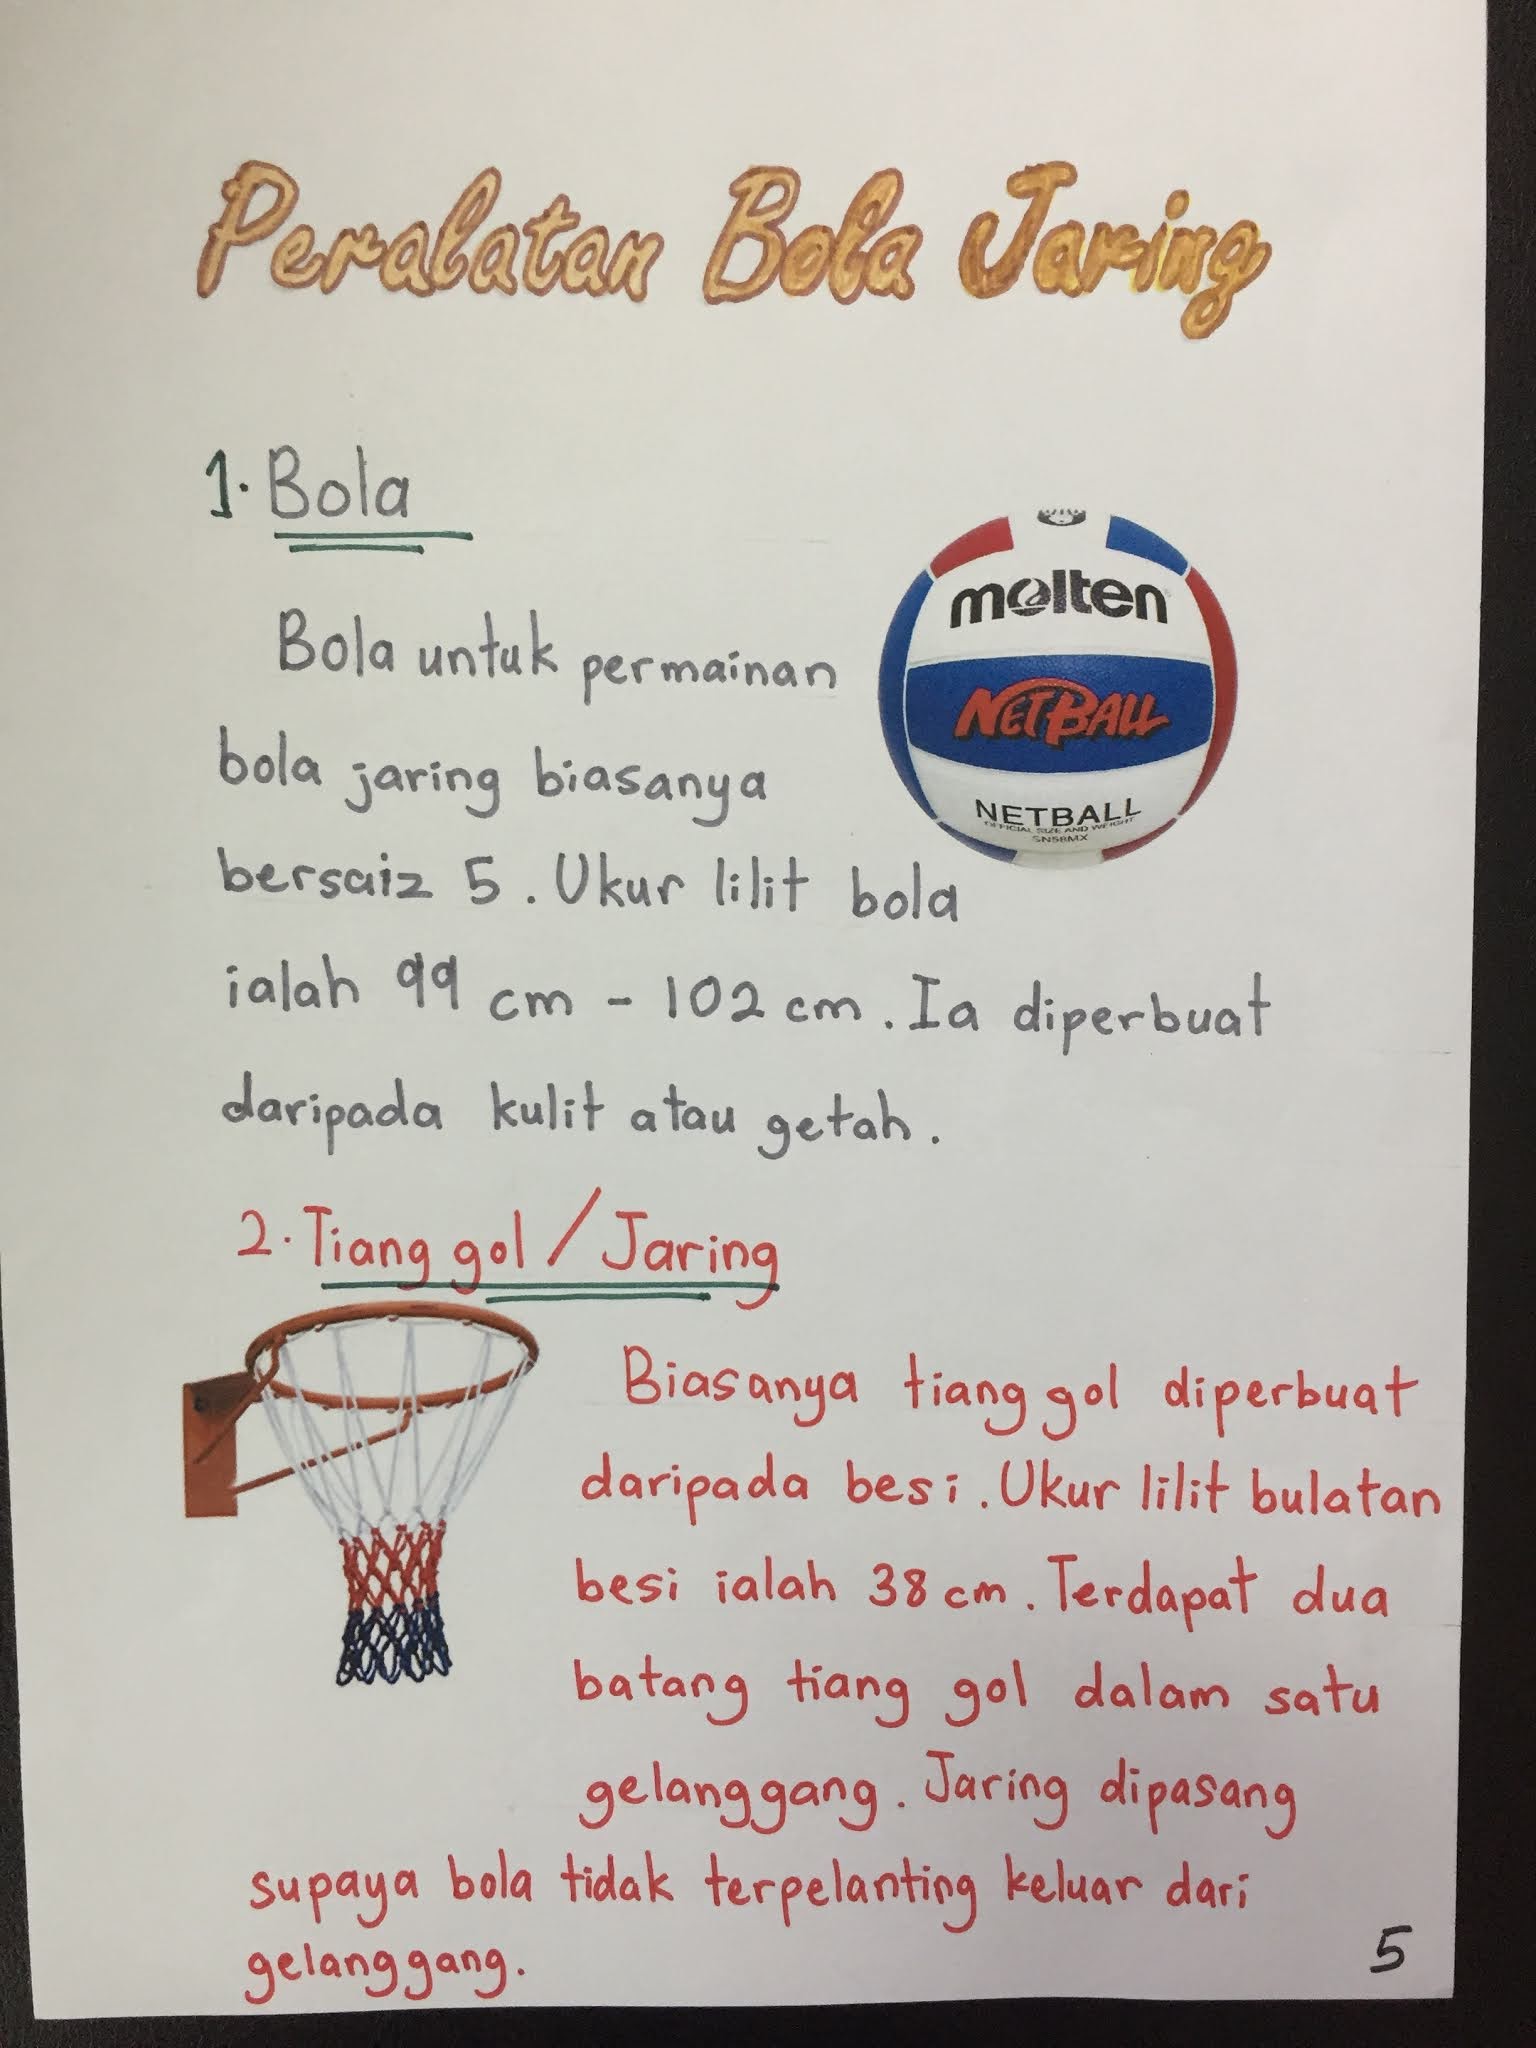 Peralatan Bola Jaring
1. Bola
molten
NETBALL
NETBALL
OFFICIAL SIZE AND WEIGHT
SN58MX
Bola untuk permainan
bola jaring biasanya
bersaiz 5. Ukur lilit bola
ialah 99 cm - 102 cm. Ia diperbuat
daripada kulit atau getah.
2. Tiang gol / Jaring
Biasanya tiang gol diperbuat
daripada besi. Ukur lilit bulatan
besi ialah 38 cm. Terdapat dua
batang tiang gol dalam satu
gelanggang. Jaring dipasang
supaya bola tidak terpelanting keluar dari
gelanggang.
5